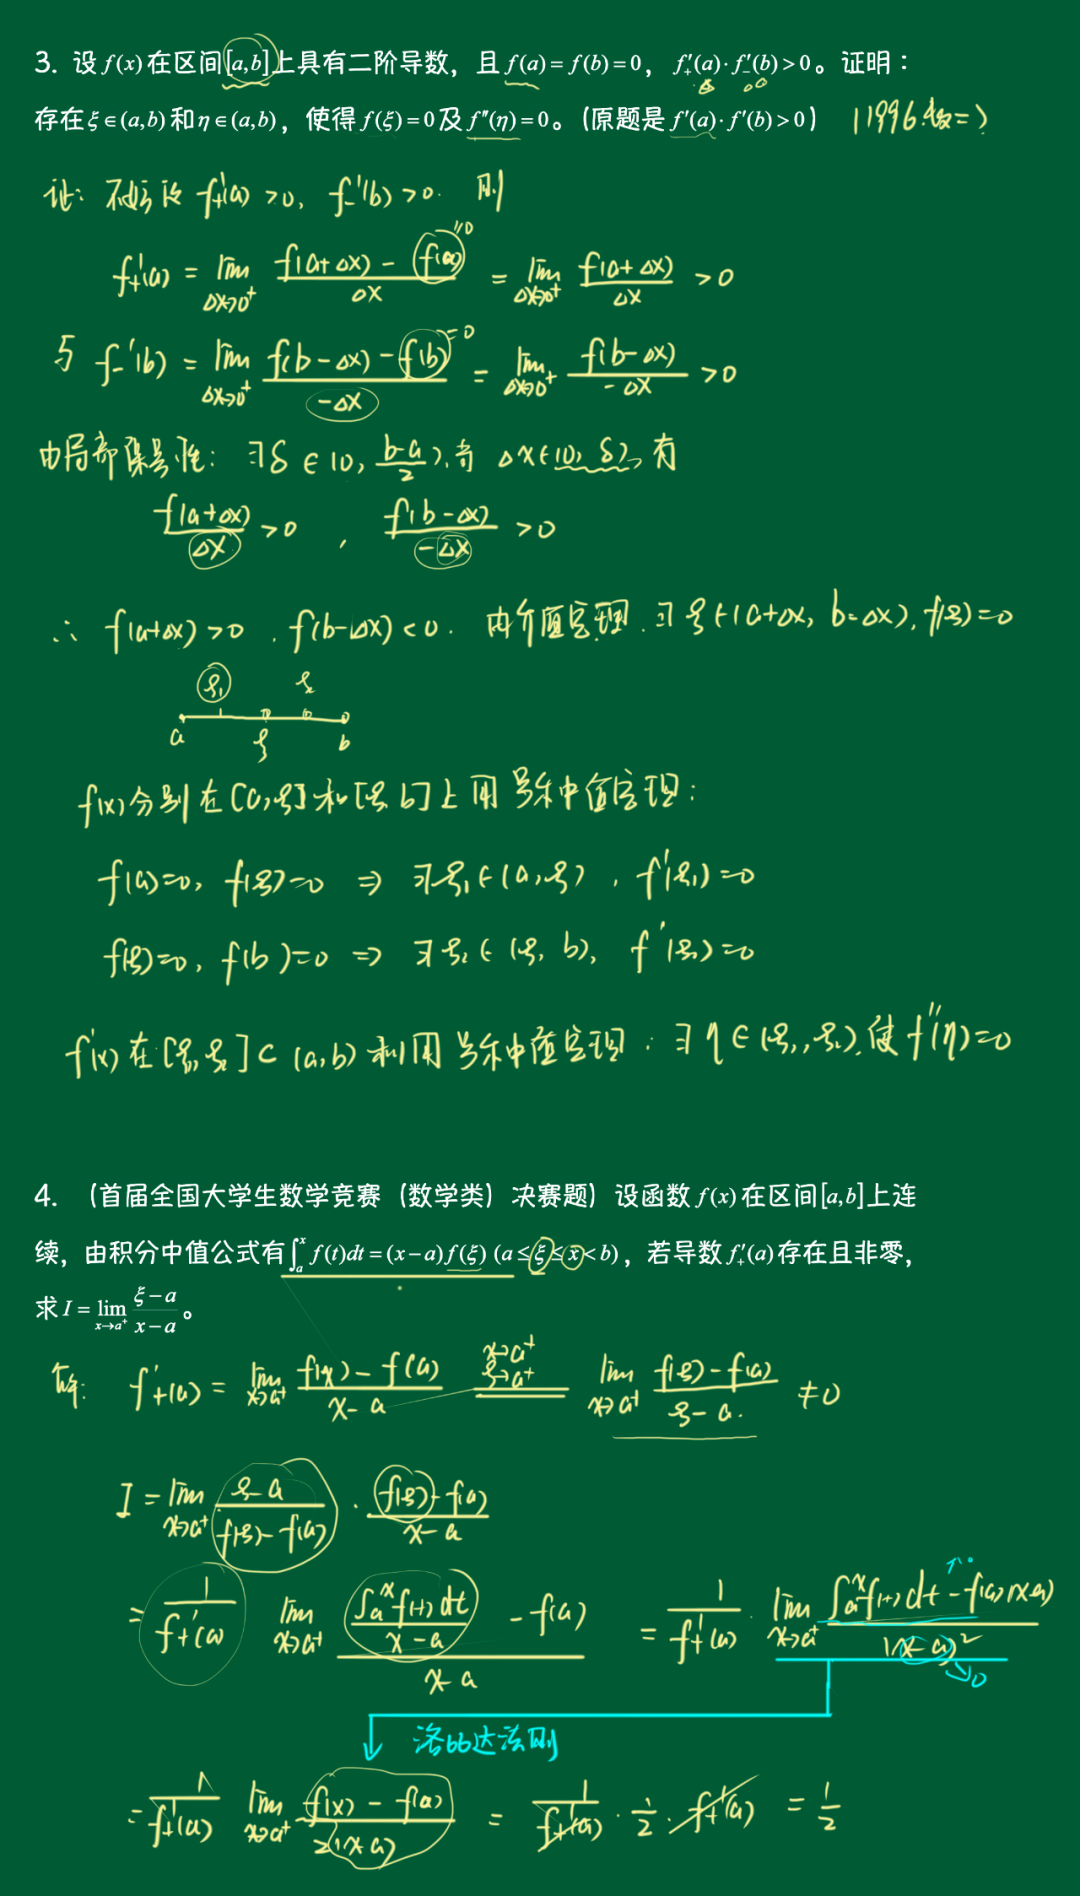 3. 设 f(x) 在区间[a,b]上具有二阶导数，且 f(a)=f(b)=0，f₊′(a)·f₋′(b)>0。证明：
存在 ξ∈(a,b) 和 η∈(a,b)，使得 f(ξ)=0 及 f″(η)=0。（原题是 f′(a)·f′(b)>0） (1996.数二)
证：不妨设 f₊′(a)>0, f₋′(b)>0. 则
f₊′(a) = lim_{Δx→0⁺} (f(a+Δx) − f(a))/Δx = lim_{Δx→0⁺} f(a+Δx)/Δx > 0
与 f₋′(b) = lim_{Δx→0⁺} (f(b−Δx) − f(b))/(−Δx) = lim_{Δx→0⁺} f(b−Δx)/(−Δx) > 0
由局部保号性：∃δ∈(0, (b−a)/2), 当 Δx∈(0, δ), 有
f(a+Δx)/Δx > 0 , f(b−Δx)/(−Δx) > 0
∴ f(a+Δx)>0 , f(b−Δx)<0. 由介值定理, ∃ξ∈(a+Δx, b−Δx), f(ξ)=0
ξ₁ ξ₂
a ξ b
f(x)分别在[a,ξ]和[ξ,b]上用罗尔中值定理：
f(a)=0, f(ξ)=0 ⇒ ∃ξ₁∈(a,ξ), f′(ξ₁)=0
f(ξ)=0, f(b)=0 ⇒ ∃ξ₂∈(ξ, b), f′(ξ₂)=0
f′(x)在[ξ₁,ξ₂]⊂(a,b)利用罗尔中值定理：∃η∈(ξ₁,ξ₂),使f″(η)=0
4. （首届全国大学生数学竞赛（数学类）决赛题）设函数 f(x) 在区间[a,b]上连
续，由积分中值公式有 ∫ₐˣ f(t)dt=(x−a)f(ξ) (a≤ξ≤x<b)，若导数 f₊′(a) 存在且非零，
求 I = lim_{x→a⁺} (ξ−a)/(x−a)。
解：f₊′(a) = lim_{x→a⁺} (f(x)−f(a))/(x−a) = (x→a⁺ ξ→a⁺) lim_{x→a⁺} (f(ξ)−f(a))/(ξ−a) ≠ 0
I = lim_{x→a⁺} (ξ−a)/(f(ξ)−f(a)) · (f(ξ)−f(a))/(x−a)
= 1/f₊′(a) lim_{x→a⁺} (∫ₐˣ f(t)dt/(x−a) − f(a))/(x−a) = 1/f₊′(a) · lim_{x→a⁺} (∫ₐˣ f(t)dt − f(a)(x−a))/(x−a)²
洛必达法则
= 1/f₊′(a) lim_{x→a⁺} (f(x) − f(a))/(2(x−a)) = 1/f₊′(a) · 1/2 · f₊′(a) = 1/2